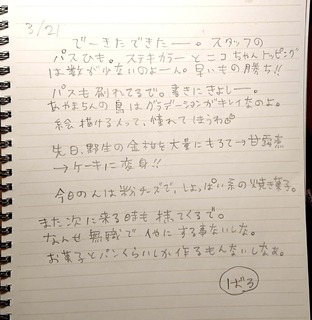 3/21
でーきたできたー。スタッフの
パスひも。ステキカラーとニコちゃんトッピング
は数が少ないのよーん。早いもの勝ち!!
パスも刷れてるで。書きにきよしー。
あやまちんの鳥はグラデーションがキレイなのよ。
絵描ける人って、憧れてまうわ
先日、野生の金柑を大量にもろて→甘露煮
→ケーキに変身!!
今日のんは粉チーズで、しょっぱい系の焼き菓子。
また次に来る時も持てくるで。
なんせ無職で他にする事ないしな。
お菓子とパンくらいしか作るもんないしなぁ。